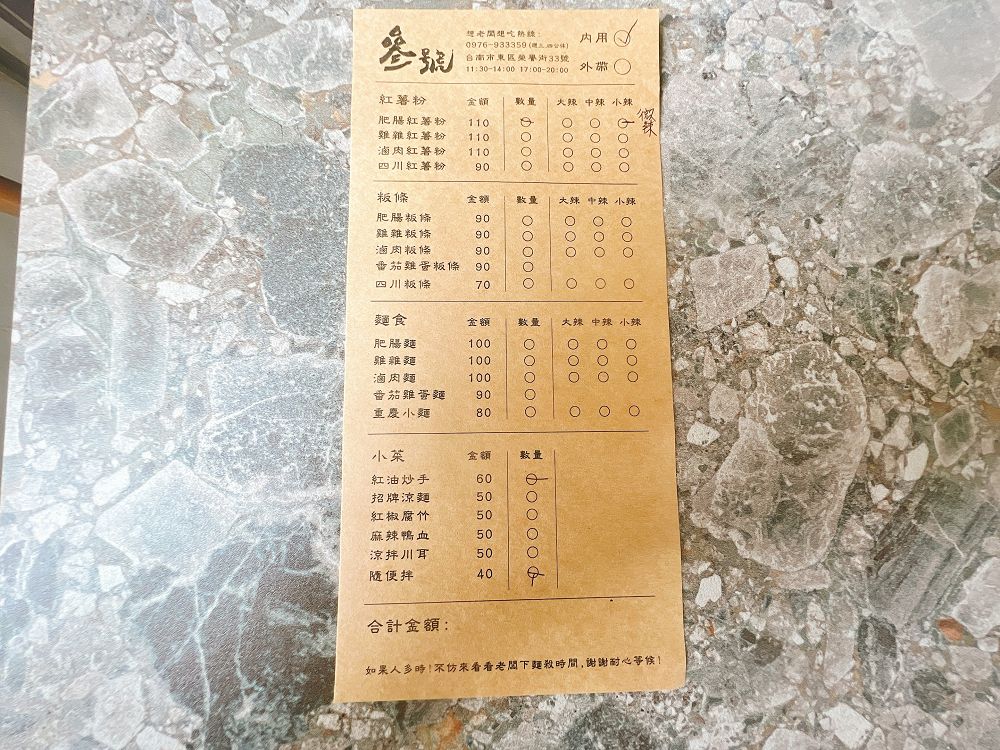 參號
想老闆想吃熱線:
0976-933359(週三.四公休)
台南市東區榮譽街33號
11:30-14:00 17:00-20:00
內用
外帶
紅薯粉 金額 數量 大辣 中辣 小辣
微辣
肥腸紅薯粉 110
雞雜紅薯粉 110
滷肉紅薯粉 110
四川紅薯粉 90
粄條 金額 數量 大辣 中辣 小辣
肥腸粄條 90
雞雜粄條 90
滷肉粄條 90
番茄雞蛋粄條 90
四川粄條 70
麵食 金額 數量 大辣 中辣 小辣
肥腸麵 100
雞雜麵 100
滷肉麵 100
番茄雞蛋麵 90
重慶小麵 80
小菜 金額 數量
紅油炒手 60
招牌涼麵 50
紅椒腐竹 50
麻辣鴨血 50
涼拌川耳 50
隨便拌 40
合計金額:
如果人多時!不仿來看看老闆下麵殺時間,謝謝耐心等候!